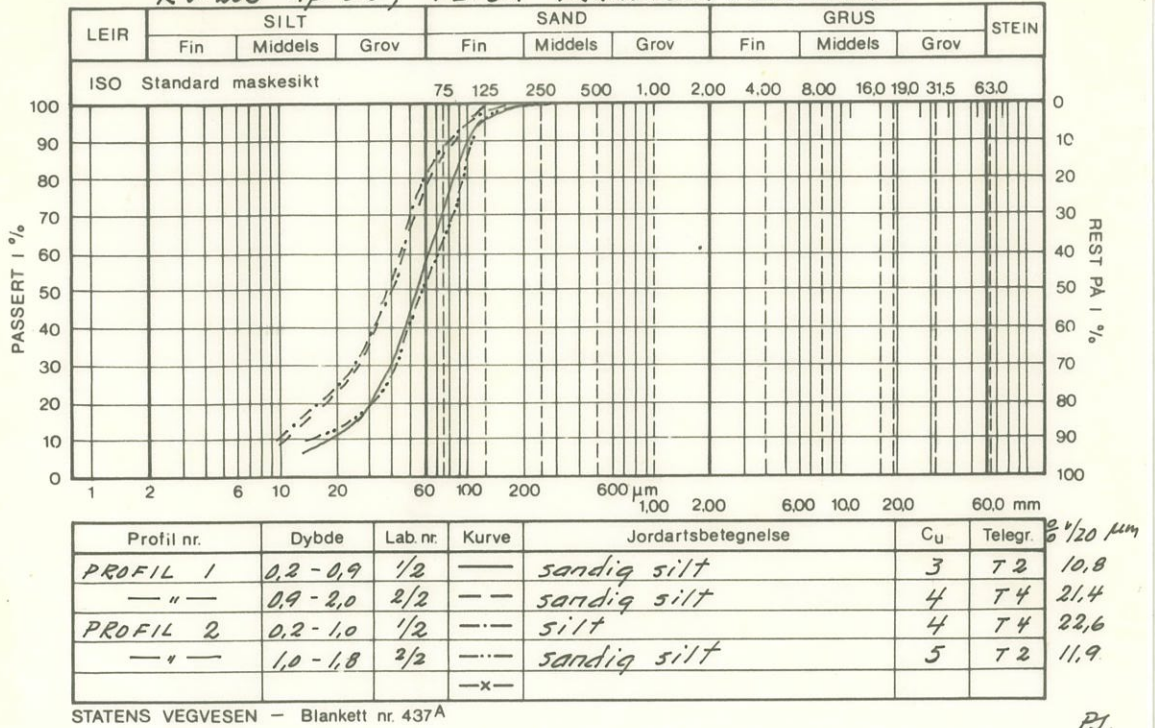 LEIR SILT SAND GRUS STEIN
Fin Middels Grov Fin Middels Grov Fin Middels Grov
ISO Standard maskesikt 75 125 250 500 1,00 2,00 4,00 8,00 16,0 19,0 31,5 63.0
100 0
90 10
80 20
70 30
60 40
50 50
40 60
30 70
20 80
10 90
0 100
PASSERT I %
REST PÅ I %
1 2 6 10 20 60 100 200 600 µm
1,00 2,00 6,00 10,0 20,0 60,0 mm
Profil nr. Dybde Lab. nr. Kurve Jordartsbetegnelse Cu Telegr. % v/20 µm
PROFIL 1 0,2 - 0,9 1/2 sandig silt 3 T 2 10,8
— " — 0,9 - 2,0 2/2 sandig silt 4 T 4 21,4
PROFIL 2 0,2 - 1,0 1/2 silt 4 T 4 22,6
— " — 1,0 - 1,8 2/2 sandig silt 5 T 2 11,9
—x—
STATENS VEGVESEN — Blankett nr. 437A